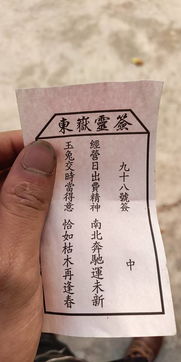 東嶽靈簽
九十八號簽
中
經營日出費精神
南北奔馳運未新
玉兔交時當得意
恰如枯木再逢春